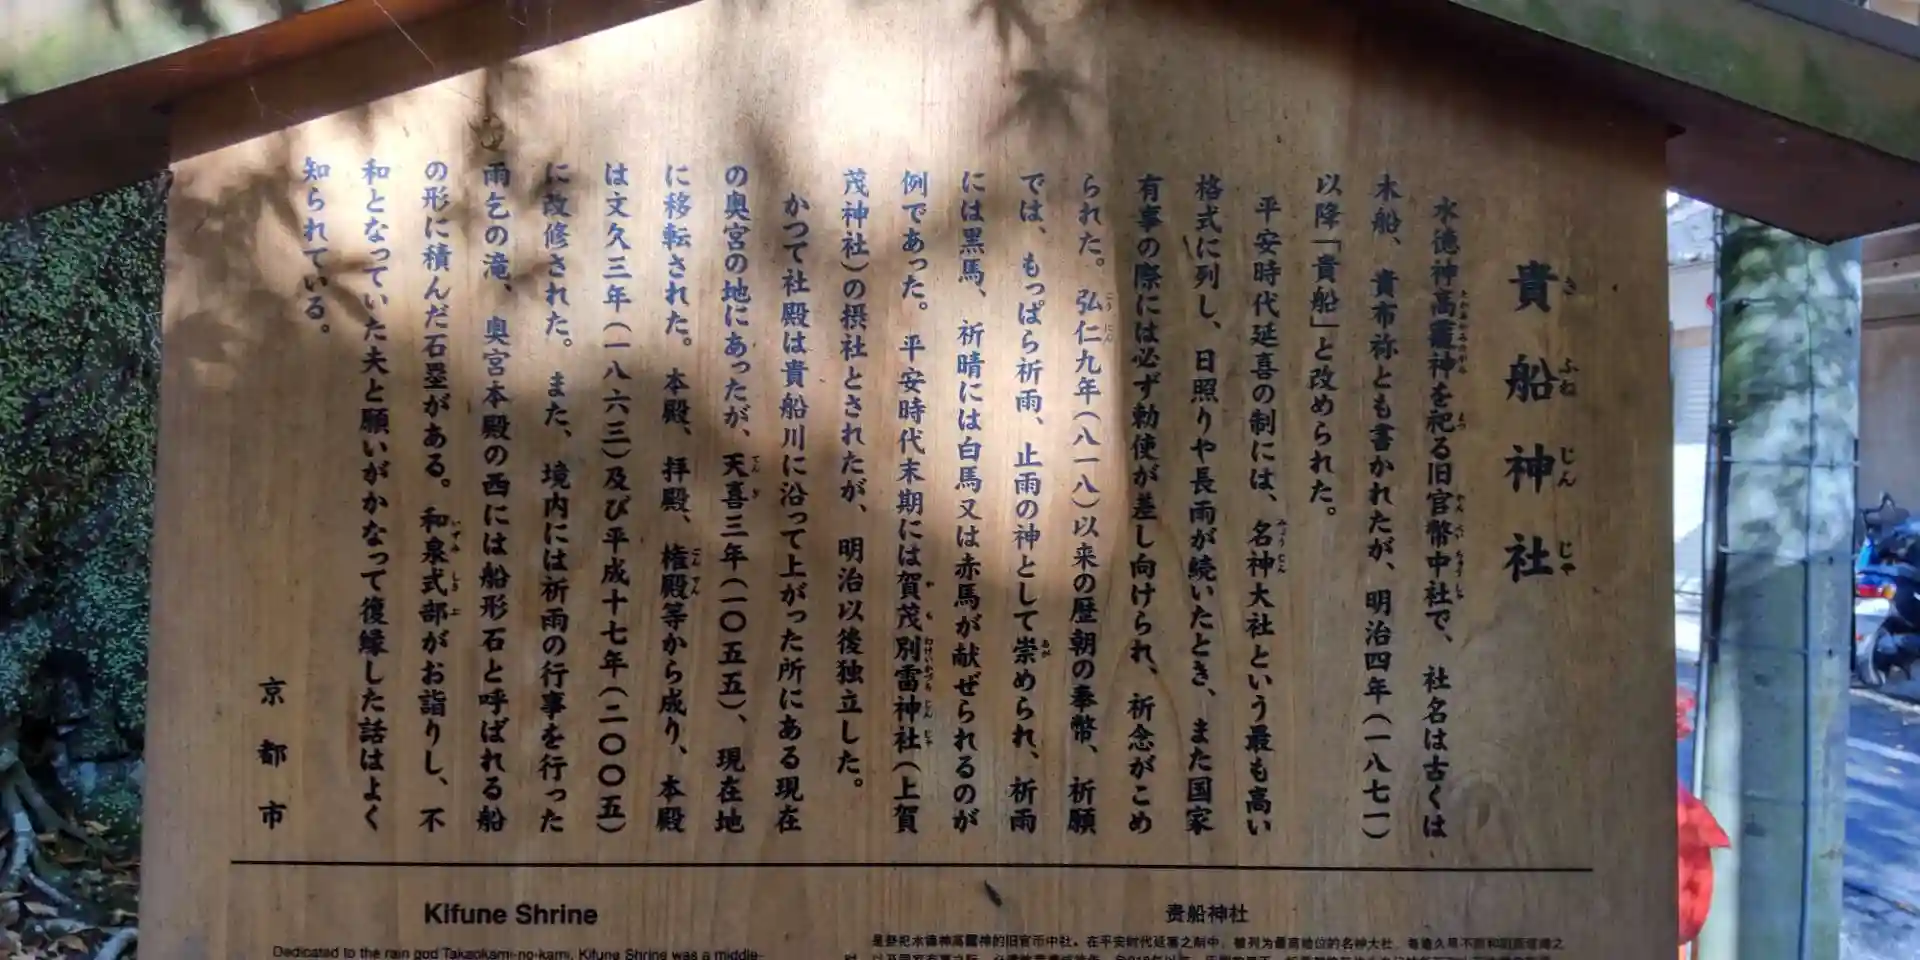 貴船神社
きふねじんじゃ
水徳神高龗神を祀る旧官幣中社で、社名は古くは
木船、貴布祢とも書かれたが、明治四年(一八七一)
以降「貴船」と改められた。
平安時代延喜の制には、名神大社という最も高い
格式に列し、日照りや長雨が続いたとき、また国家
有事の際には必ず勅使が差し向けられ、祈念がこめ
られた。弘仁九年(八一八)以来の歴朝の奉幣、祈願
では、もっぱら祈雨、止雨の神として崇められ、祈雨
には黒馬、祈晴には白馬又は赤馬が献ぜられるのが
例であった。平安時代末期には賀茂別雷神社(上賀
茂神社)の摂社とされたが、明治以後独立した。
かつて社殿は貴船川に沿って上がった所にある現在
の奥宮の地にあったが、天喜三年(一〇五五)、現在地
に移転された。本殿、拝殿、権殿等から成り、本殿
は文久三年(一八六三)及び平成十七年(二〇〇五)
に改修された。また、境内には祈雨の行事を行った
雨乞の滝、奥宮本殿の西には船形石と呼ばれる船
の形に積んだ石塁がある。和泉式部がお詣りし、不
和となっていた夫と願いがかなって復縁した話はよく
知られている。
京都市
Kifune Shrine
Dedicated to the rain god Takaokami-no-kami, Kifune Shrine was a middle-
贵船神社
是祭祀水德神高龗神的旧官币中社。在平安时代延喜之制中，被列为最高地位的名神大社。